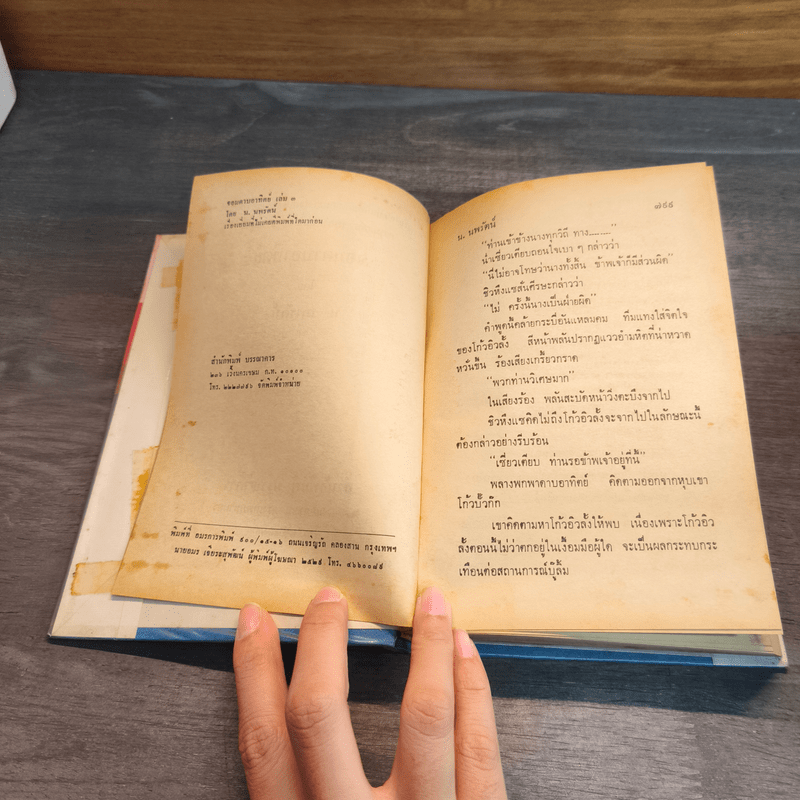 จอมดาบอาทิตย์ เล่ม ๓
โดย น. นพรัตน์
เรื่องเยี่ยมที่ไม่เคยตีพิมพ์ที่ใดมาก่อน
สำนักพิมพ์ บรรณาคาร
๒๘๖ เวิ้งนครเขษม ก.ท. ๑๐๑๐๐
โทร. ๒๒๒๗๗๙๖ จัดพิมพ์จำหน่าย
พิมพ์ที่ อมรการพิมพ์ ๙๐๐/๑๕-๑๖ ถนนเจริญรัถ คลองสาน กรุงเทพฯ
นายอมร เจียรสุพัฒน์ ผู้พิมพ์ผู้โฆษณา ๒๕๒๕ โทร. ๔๖๖๐๐๘๕
น. นพรัตน์
"ท่านเข้าข้างนางทุกวิถี ทาง........"
น้ำเซี่ยวเตียบถอนใจเบา ๆ กล่าวว่า
"นี่ไม่อาจโทษว่านางทั้งสิ้น ข้าพเจ้าก็มีส่วนผิด"
ชิวหึงแซสั่นศีรษะกล่าวว่า
"ไม่ ครั้งนี้นางเป็นฝ่ายผิด"
คำพูดนี้คล้ายกระบี่อันแหลมคม ทิ่มแทงใส่จิตใจ
ของโก้วอิวลั้ง สีหน้าพลันปรากฏแววอำมหิตที่น่าหวาด
หวั่นขึ้น ร้องเสียงเกรี้ยวกราด
"พวกท่านวิเศษมาก"
ในเสียงร้อง พลันสะบัดหน้าวิ่งตะบึงจากไป
ชิวหึงแซคิดไม่ถึงโก้วอิวลั้งจะจากไปในลักษณะนี้
ต้องกล่าวอย่างรีบร้อน
"เซี่ยวเตียบ ท่านรอข้าพเจ้าอยู่ที่นี้"
พลางพกพาดาบอาทิตย์ คิดตามออกจากหุบเขา
โก้วบั๊วกึก
เขาคิดตามหาโก้วอิวลั้งให้พบ เนื่องเพราะโก้วอิว
ลั้งตอนนี้ไม่ว่าตกอยู่ในเงื้อมมือผู้ใด จะเป็นผลกระทบกระ
เทือนต่อสถานการณ์บู๊ลิ้ม